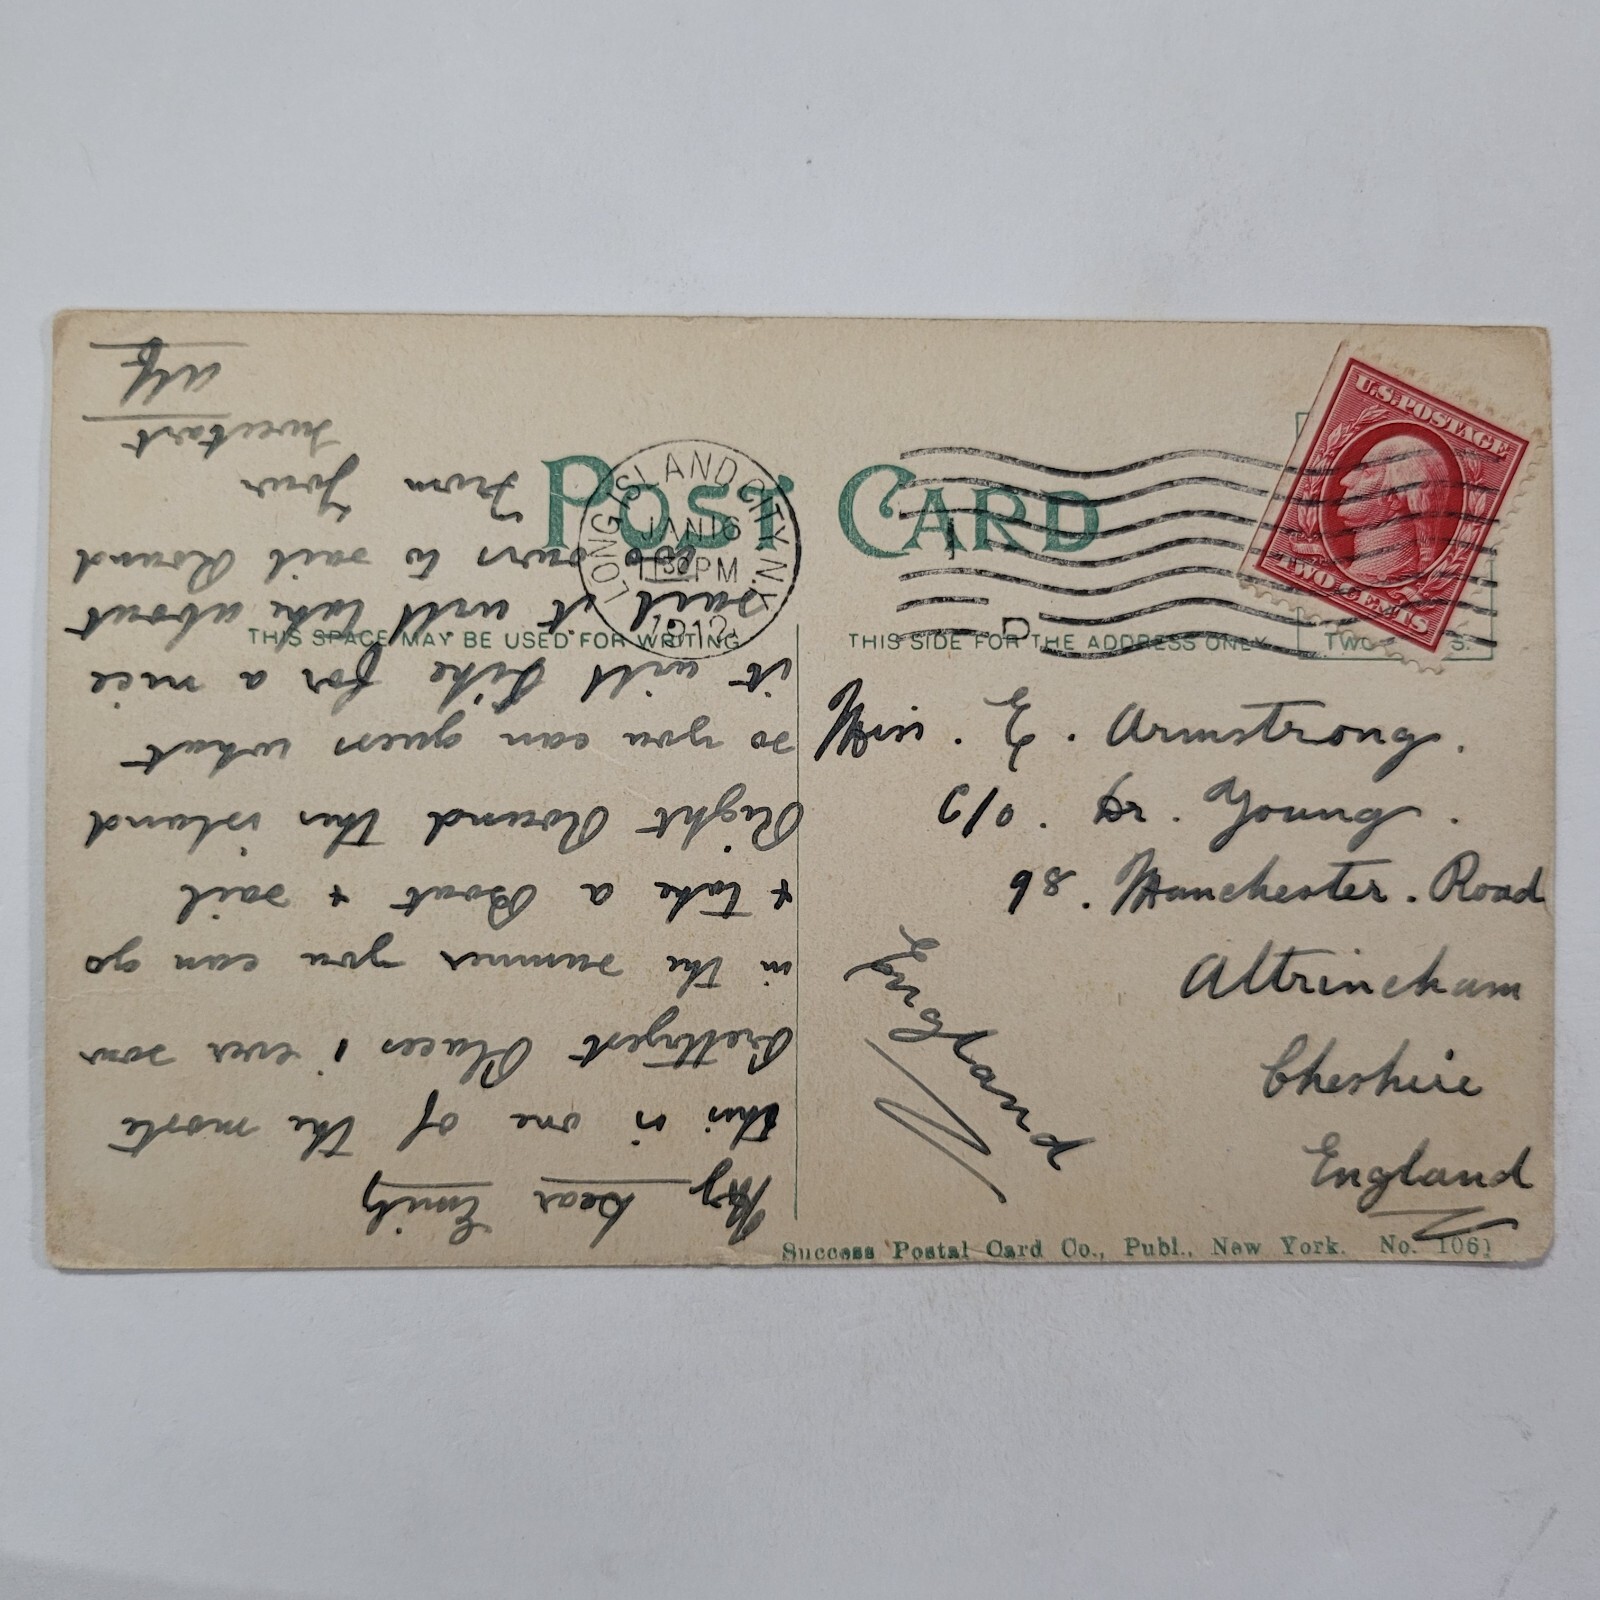 POST CARD
LONG ISLAND CITY N.Y.
JAN 16
1130PM
1912
U.S. POSTAGE
TWO CENTS
THIS SPACE MAY BE USED FOR WRITING
THIS SIDE FOR THE ADDRESS ONLY
TWO S.
Miss. E. Armstrong.
C/o. Dr. Young.
98. Manchester. Road
Altrincham
Cheshire
England
England
Success Postal Card Co., Publ., New York. No. 1061
My Dear Emily
this is one of the moste
Prettyest Places i ever saw
in the summer you can go
+ take a Boat + sail
Right Round this island
so you can guess what
it will Like for a nice
sail it will take about
ours to sail Round
From Your
Sweetart
Alf